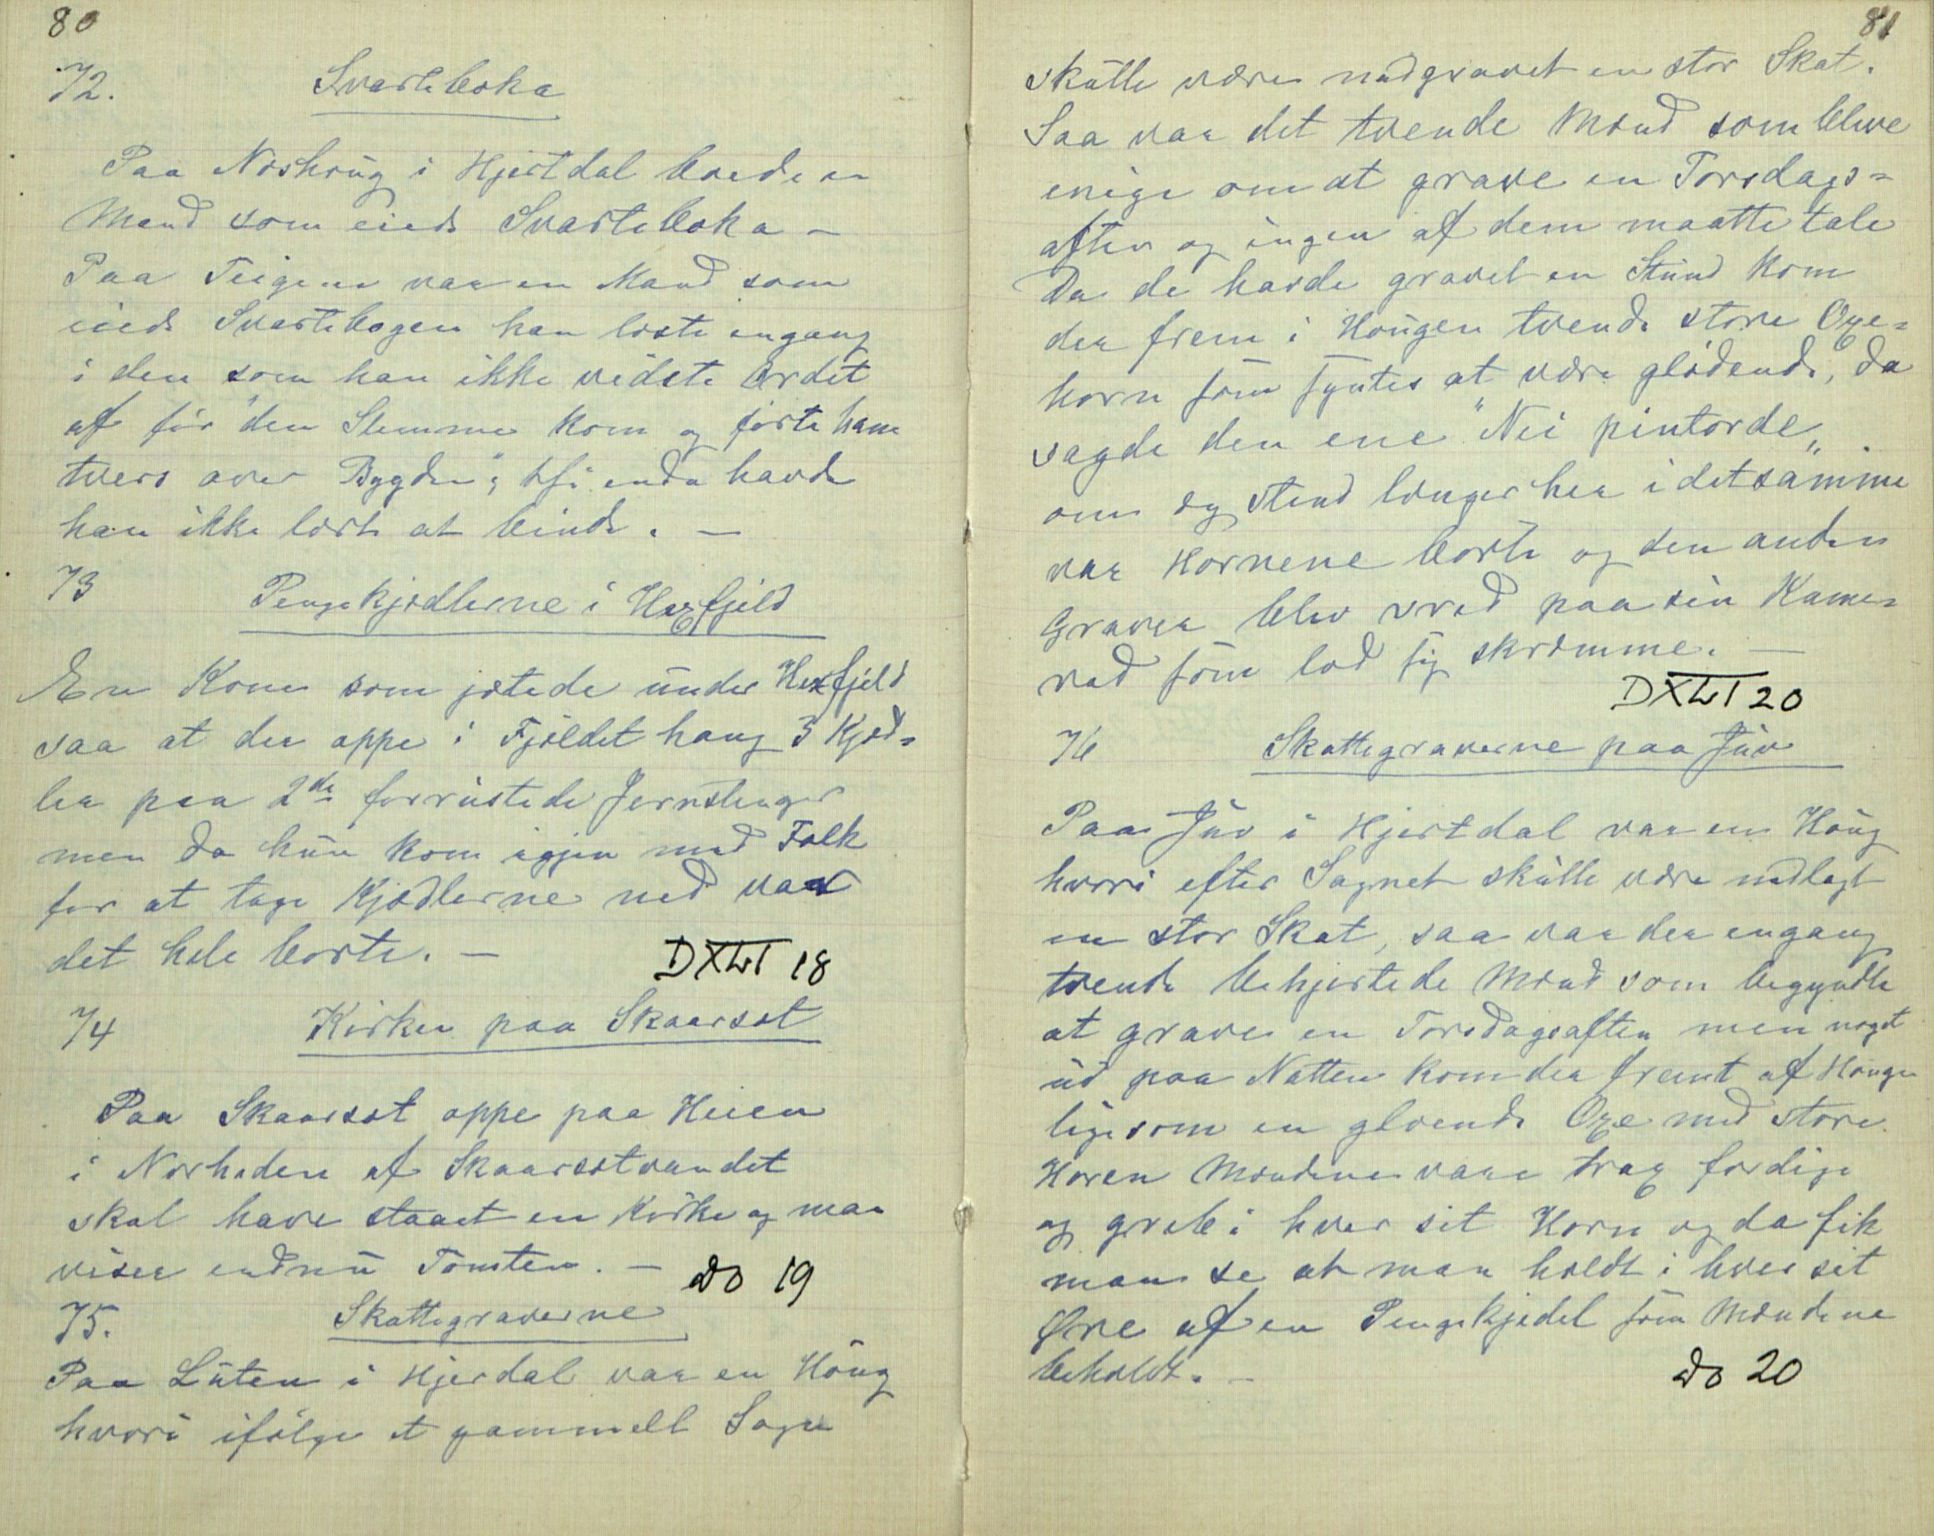 80
72.
Svarteboka
Paa Noshaug i Hjertdal boede en
Mand som eiede Svarteboka –
Paa Teigene var en Mand som
eiede Svartebogen han læste engang
i den som han ikke vidste Ordet
af før "den Slemme kom og førte ham
tvers over Bygden"; thi enda havde
han ikke lært at binde. –
73
Pengekjedlerne i Hexfjeld
En Kone som jætede under Hexfjeld
saa at der oppe i Fjeldet hang 3 Kjed-
ler paa 2de forrustede Jernstenger
men da hun kom igjen med Folk
for at tage Kjedlerne ned var
det hele borte. –
DXLI 18
74
Kirken paa Skaarset
Paa Skaarset oppe paa Heien
i Nærheden af Skaarsetvandet
skal have staaet en Kirke og man
viser endnu Tomten. –
Do 19
75.
Skattegraverne
Paa Luten i Hjerdal var en Houg
hvori ifølge et gammelt Sagn
81
skulle være nedgravet en stor Skat.
Saa var det tvende Mænd som bleve
enige om at grave en Torsdags-
aften og ingen af dem maatte tale
Da de havde gravet en Stund kom
der frem i Hougen tvende store Oxe-
horn som syntes at være glødende, da
sagde den ene "Nei pintorde"
om eg stend lenger her i detsamme
var Hornene borte og den anden
Graver blev vred paa sin Kame-
rad som lod sig skræmme. –
DXLI 20
76
Skattegraverne paa Juv
Paa Juv i Hjertdal var en Houg
hvori efter Sagnet skulle være nedlagt
en stor Skat, saa var der engang
tvende behjertede Mænd som begyndte
at grave en Torsdagsaften men noget
ud paa Natten kom der fremt af Hougen
ligesom en gloende Oxe med store
Horen Mændene vare trax færdige
og greb i hver sit Horn og da fik
man se at man holdt i hver sit
Øre af en Pengekjedel som Mændene
beholdt. –
Do 20